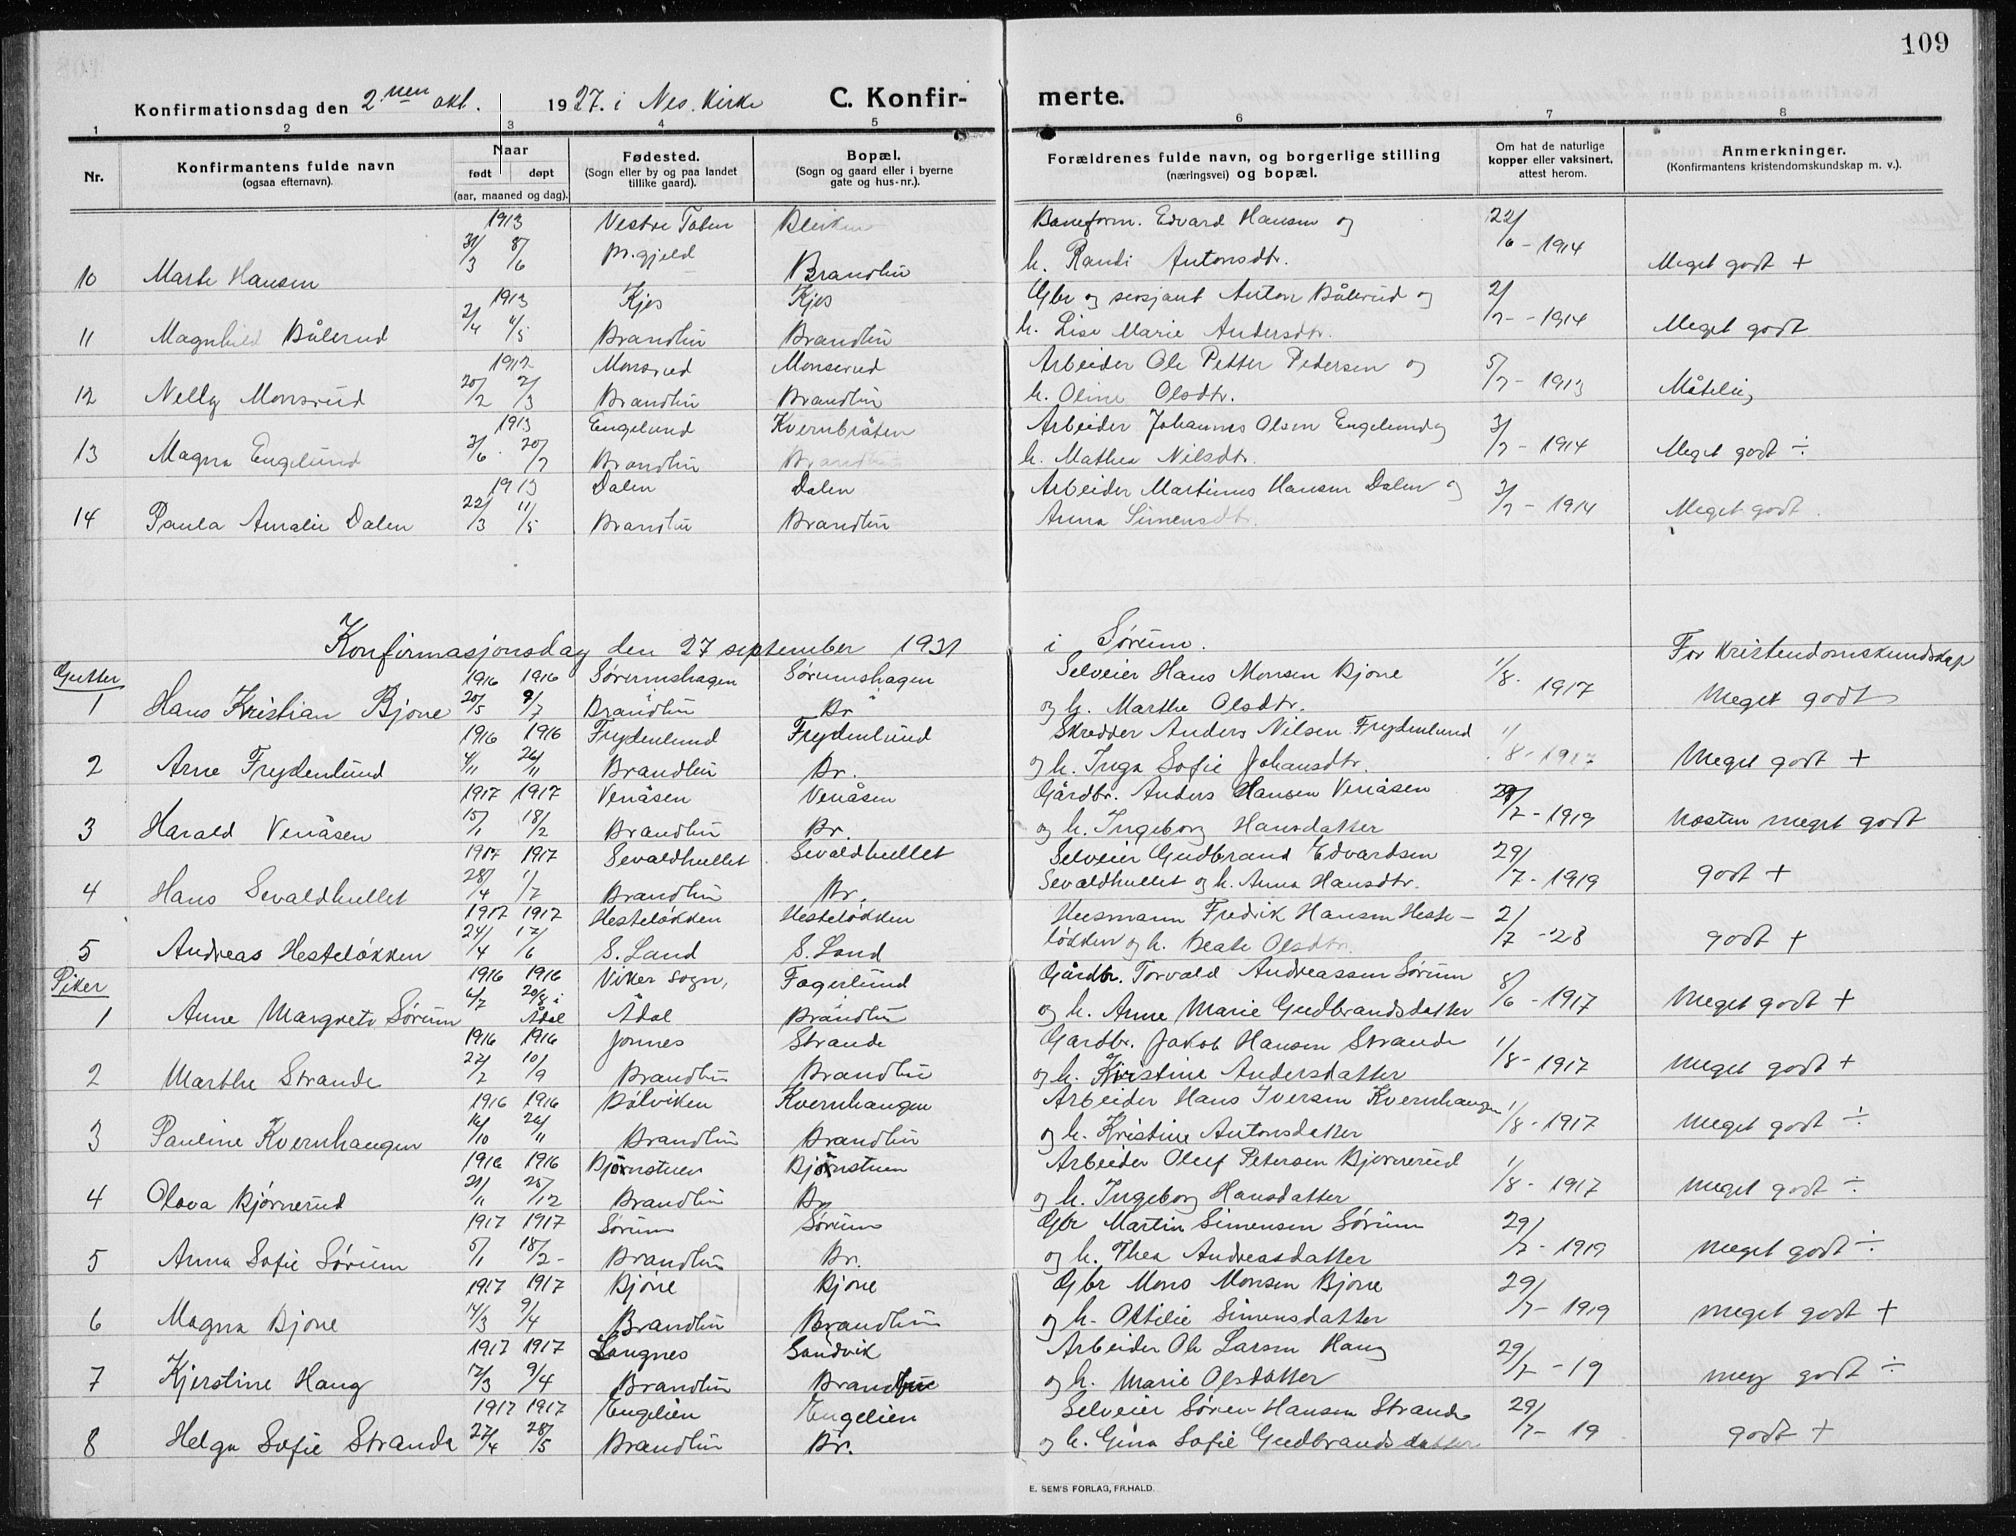 109
Konfirmationsdag den 2nen okt. 1927. i Nes. Kirke C. Konfirmerte.
1 2 3 4 5 6 7 8
Nr. Konfirmantens fulde navn (ogsaa efternavn). Naar født døpt (aar, maaned og dag). Fødested. (Sogn eller by og paa landet tillike gaard). Bopæl. (Sogn og gaard eller i byerne gate og hus-nr.). Forældrenes fulde navn, og borgerlige stilling (næringsvei) og bopæl. Om hat de naturlige kopper eller vaksinert, attest herom. Anmerkninger. (Konfirmantens kristendomskundskap m. v.).
1913 Vestre Toten Bleiken Baneform. Edvard Hansen og 22/
10 Marte Hansen 31/3 8/6 pr.gjeld Brandbu h. Randi Antonsdtr. /6 - 1914 Meget godt +
1913 Kjos Kjos Gbr og sersjant Anton Bålerud og 2/
11 Magnhild Bålerud 2/4 4/5 Brandbu Brandbu h. Lise Marie Andersdtr. /7 - 1914 Meget godt
1912 Monsrud Monserud Arbeider Ole Petter Pedersen og 5/
12 Nelly Monsrud 20/2 2/3 Brandbu Brandbu h. Oline Olsdtr. /7 - 1913 Måtelig
1913 Engelund Kvernbråten Arbeider Johannes Olsen Engelund og 3/
13 Magna Engelund 3/6 20/7 Brandbu Brandbu h. Mathea Nilsdtr. /7 - 1914 Meget godt ÷
1913 Dalen Dalen Arbeider Martinus Hansen Dalen og 3/
14 Paula Amalie Dalen 22/3 11/5 Brandbu Brandbu Anna Simensdtr. /7 - 1914 Meget godt.
Konfirmasjonsdag den 27 september 1931 i Sørum. For Kristendomskundskap
Gutter 1916 1916 Sørumshagen Sørumshagen Selveier Hans Monsen Bjone 1/8.
1 Hans Kristian Bjone 20/5 9/7 Brandbu Br og h. Marthe Olsdtr. 1917 Meget godt
1916 1916 Frydenlund Frydenlund Skredder Anders Nilsen Frydenlund 1/
2 Arne Frydenlund 4/11 26/11 Brandbu Br. og h. Inga Sofie Johansdtr. 8 - 1917 Meget godt +
1917 1917 Venåsen Venåsen Gårdbr. Anders Hansen Venåsen 29/
3 Harald Venåsen 15/1 18/2 Brandbu Br. og h. Ingeborg Hansdatter /7 - 1919 Nesten meget godt
1917 1917 Sevaldhullet Sevaldhullet Selveier Gudbrand Edvardsen 29/
4 Hans Sevaldhullet 28/4 1/7 Brandbu Br. Sevaldhullet og h. Anna Hansdtr. /7 - 1919 godt +
1917 1917 Hesteløkken Hesteløkken Husmann Fredrik Hansen Heste- 2/
5 Andreas Hesteløkken 24/4 17/6 S. Land S. Land løkken og h. Beate Olsdtr. /7 - 28 godt +
Piker 1916 1916 Viker sogn, Fagerlund Gårdbr. Torvald Andreassen Sørum 8/
1 Anne Margrete Sørum 6/7 20/8 i Ådal Ådal Brandbu og h. Anne Marie Gudbrandsdatter /6 - 1917 Meget godt +
1916 1916 Jonnes Strande Gårdbr. Jakob Hansen Strande 1/
2 Marthe Strande 22/2 10/9 Brandbu Brandbu og h. Kirstine Andersdatter /8 - 1917 Meget godt +
1916 1916 Bølviken Kvernhaugen Arbeider Hans Iversen Kvernhaugen 1/
3 Pauline Kvernhaugen 16/10 26/11 Brandbu Brandbu og h. Kristine Antonsdatter /8 - 1917 Meget godt ÷
1916 1916 Bjørnstuen Bjørnstuen Arbeider Oluf Petersen Bjørnerud 1/
4 Olova Bjørnerud 21/11 25/12 Brandbu Br og h. Ingeborg Hansdatter /8 - 1917 Meget godt ÷
1917 1917 Sørum Sørum Gbr Martin Simensen Sørum 29/
5 Anna Sofie Sørum 5/1 18/2 - Brandbu Br. og h. Thea Andreasdatter /7 - 1919 Meget godt ÷
1917 1917 Bjone Bjone Gbr Mons Monsen Bjone 29/
6 Magna Bjone 14/3 9/4 Brandbu Brandbu og h. Ottilie Simensdatter /7 - 1919 Meget godt +
1917 1917 Langnes Sandvik Arbeider Ole Larsen Haug 29/
7 Kjerstine Haug 12/3 9/4 Brandbu Brandbu og h. Marie Olsdatter /7 - 19 meg godt ÷
1917 1917 Engelien Engelien Selveier Søren Hansen Strande 29/
8 Helga Sofie Strande 27/4 28/5 Brandbu Br. og h. Gina Sofie Gudbrandsdatter /7 - 19 godt +
E. SEM'S FORLAG, FR.HALD.